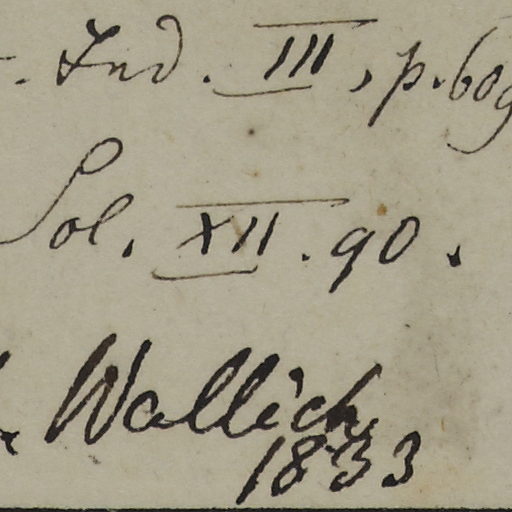 . Ind. III, p. 609
Sol. XII. 90.
Wallich
1833